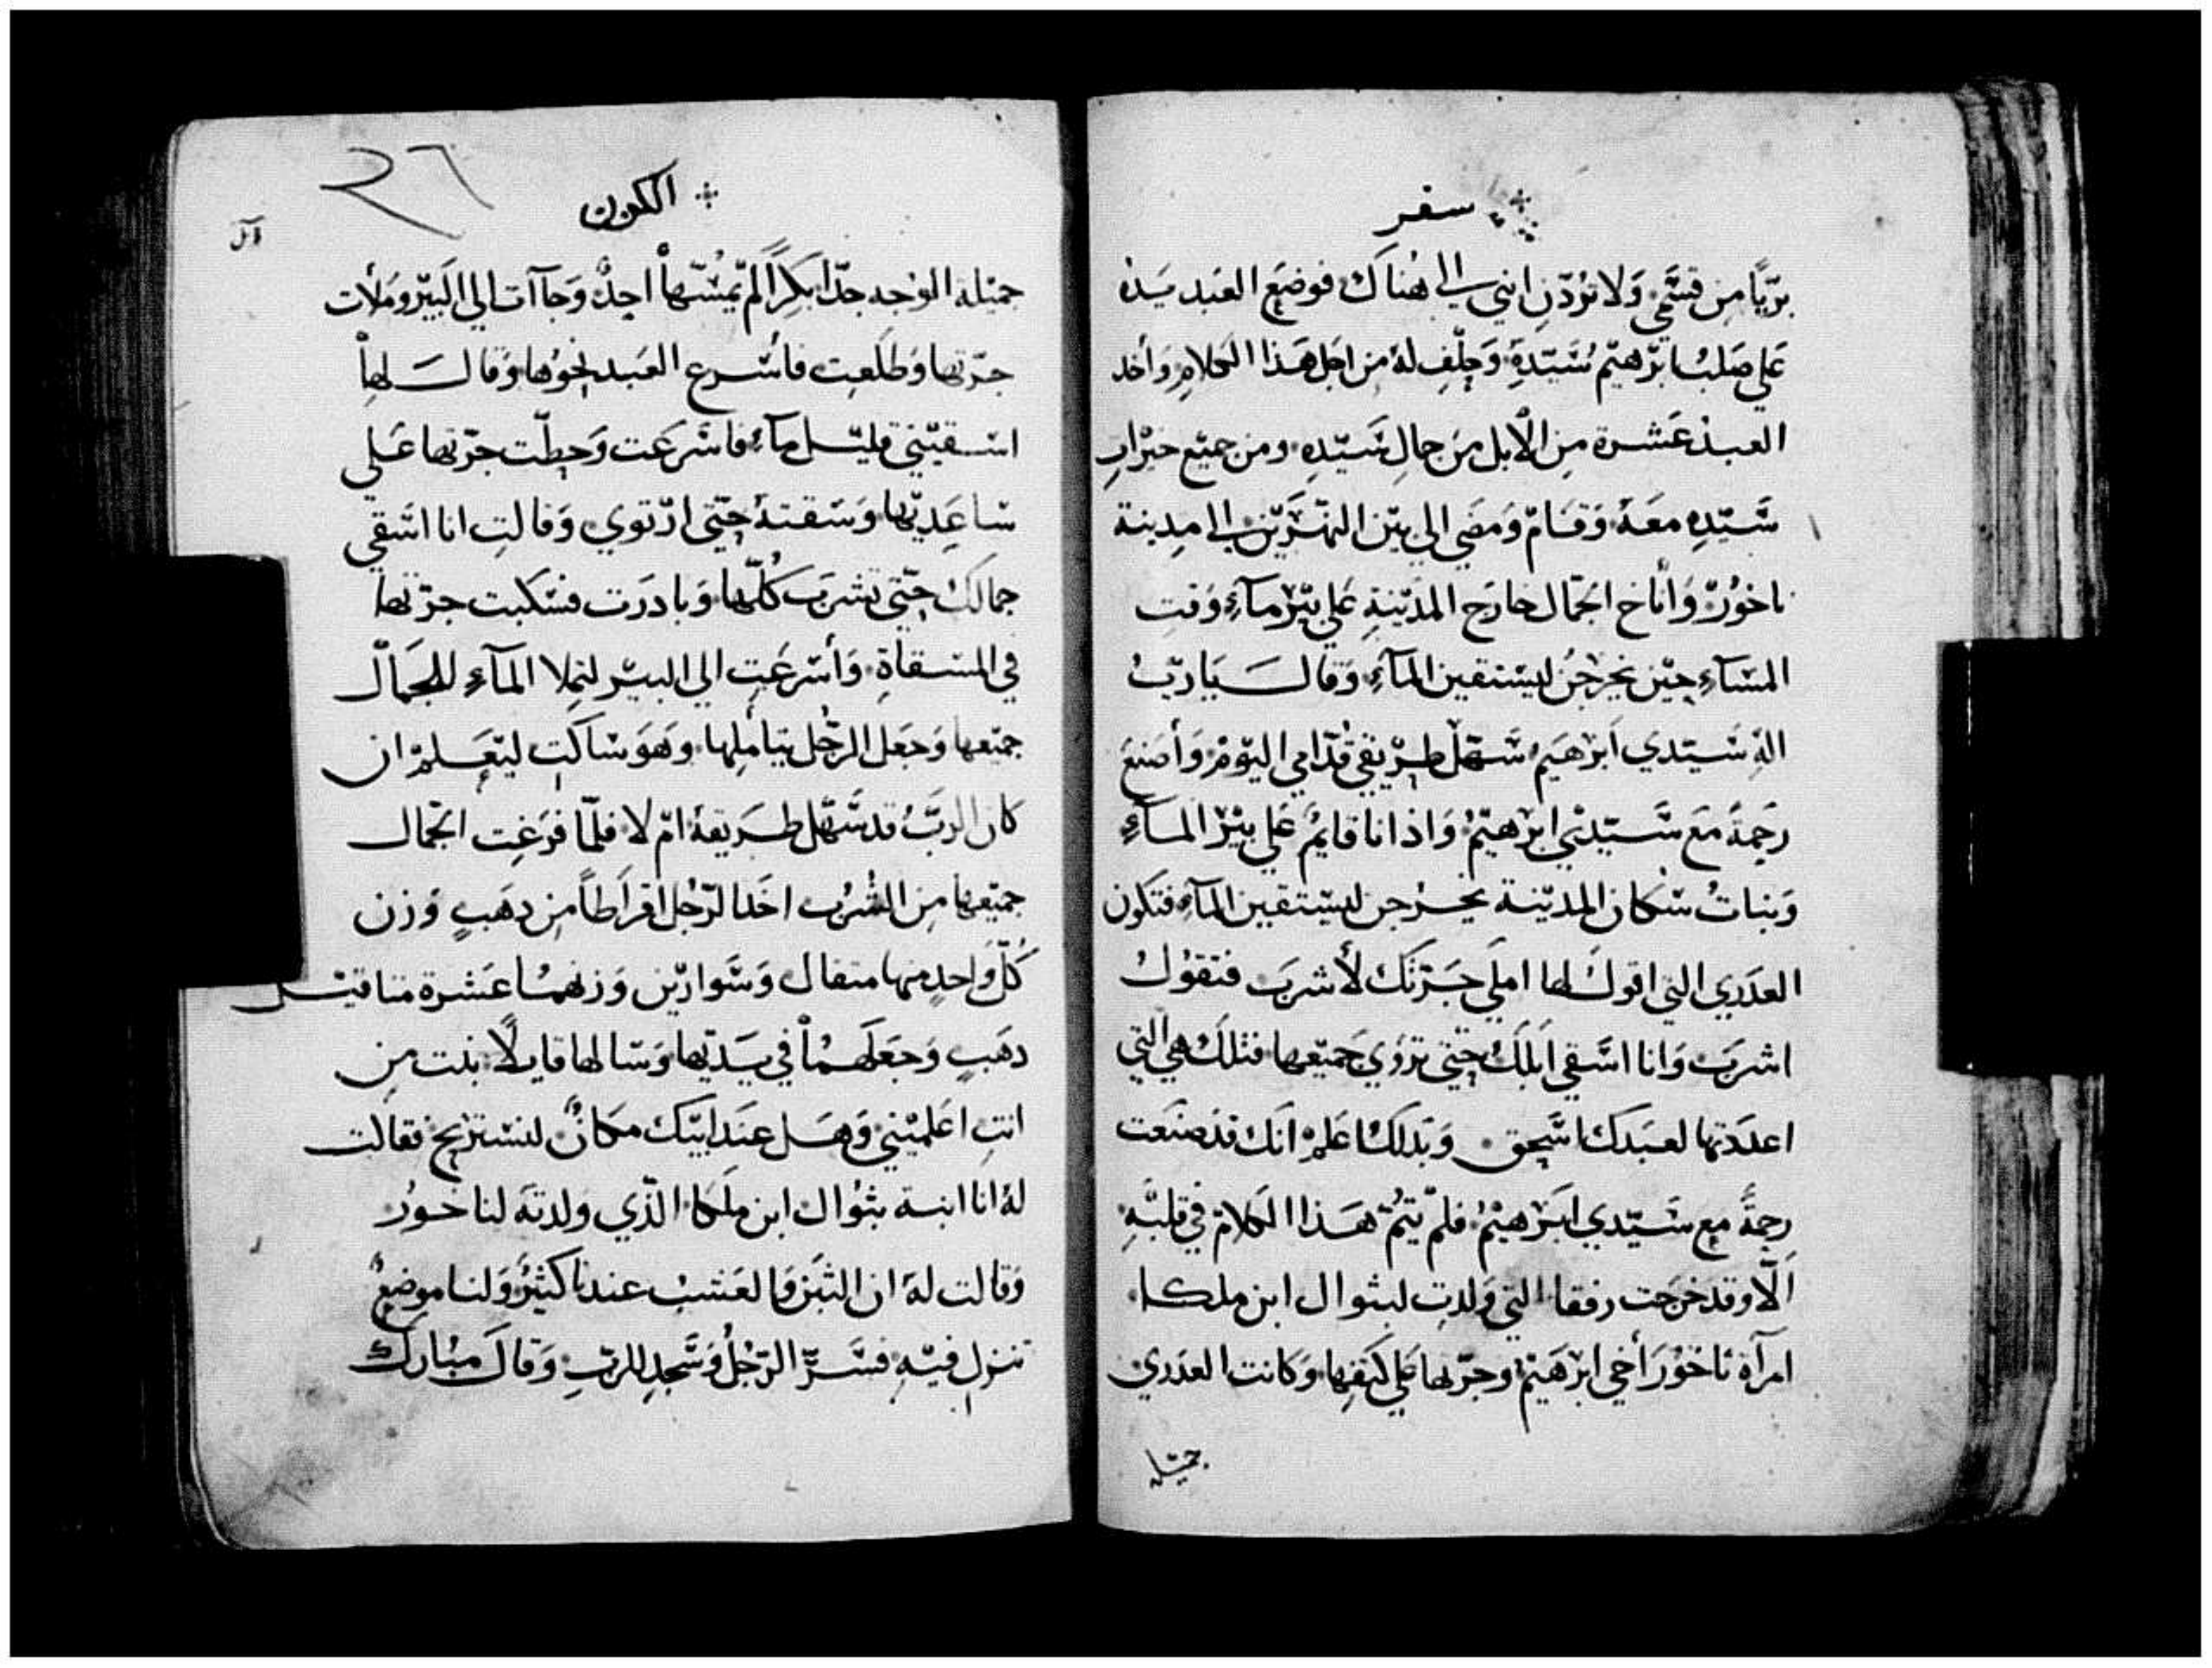 سفر
بريًا من قسَمي وَلا تردّن ابني الي هُناك فوضَع العَبد يَده
عَلي صَلب ابرَهيم سَيّدهِ وَحلّف لهُ من اجل هَذا الكلامِ وَأخد
العبد عَشرة مِن الأبل من جمالِ سَيّدهِ ومن جميَع خيرَاتِ
سَيّدهِ معَهُ وَقامَ وَمضَي الي بين النهَرَين الي مدينة
ناخورُ وَأناخ الجمَال خارَج المدَينةِ عَلي بيَر مآءِ وَقت
المسَآءِ حيَن يخرجنُ ليسَتقين المآءِ وَقالَ يَا ربُ
الهَ سَيّدي ابرَهيَم سَهّل طريقي قدّامي اليوَمَ وَأصنعَ
رَحمةً مَع سَيّدي ابرهيَمُ وَاذ انا قايمُ عَلي بيَر المآءِ
وَبناتُ سُكان المديَنة يخرجن ليسَتقين المآءِ فتَكون
العدَري التي اقولَ لها املَي جَرّتكَ لأشربَ فتقوُلُ
اشربَ وَانا اسَقي ابلَكُ حَتي تروَي جَميَعها فتلَكَ هي التي
اعدَدتها لعبَدكَ اسَحق وَبدلكَ اعَلمَ انكَ قدَ صَنعَت
رحمةً مع سَيّدي ابَرهيَمُ فلمّ يتمُّ هَذا الكلامَ في قلبَهِ
اَلّا وقد خرجَت رفقا التي وَلدت لبثوال ابن ملكا
امرآة ناخورَ أخي ابرَهيَم وجرّتها عَلي كتَفِها وَكانت العدَري
جميَلة
الكون
جميَلة الوَجه جدّا بكرًا لمّ يمسّهاَ احدٌ وَجآات الي البَيّر ومَلأت
جرّتها وَطلعَت فاسَرع العَبد نحوَها وَقالَ لهاَ
اسَقيَني قليَل مآءِ فاسَرعَت وَحطّت جرّتها عَلي
سَاعِديّها وَسَقتهُ حَتي ارّتوي وَقالتِ انا اسَقي
جمالكَ حَتي تشربَ كُلّها وَبادرَت فسَكبت جرّتها
في المسَقاةِ وَأسَرعَتِ الي البيَر لتملا المآءِ للجمَالَ
جميَعها وَجعَل الرجُل يتأمِلها وَهوَ سَاكت ليعَلمَ ان
كان الربَّ قد سَهّل طَريقهُ امّ لا فلمّا فرَغت الجمَال
جميَعها مِن الشُرب اخَد الرّجُل اقراَطاً مِن دهَبٍ وَزن
كُلّ وَاحدٍ منها متقال وَسَواريّن وَزنهمُا عَشرة متاقيَل
دهَبٍ وَجعَلَهُماَ في يَديّها وَسَالها قايلًا بنت من
انتِ اعَلميَني وَهَل عنَد ابيَك مكانٌ لنسَتريح فقالت
لهُ انا ابنة بثوال ابن ملَكا الذّي وَلدتهَ لناخورُ
وَقالت لهَ ان التبَن وَالعَشبُ عندنا كثيرٌ وَلنا موَضعٌ
تنزل فيهِ فسَرَّ الرّجُلُ وَسَجدَ للربّ وَقالَ مبُارك